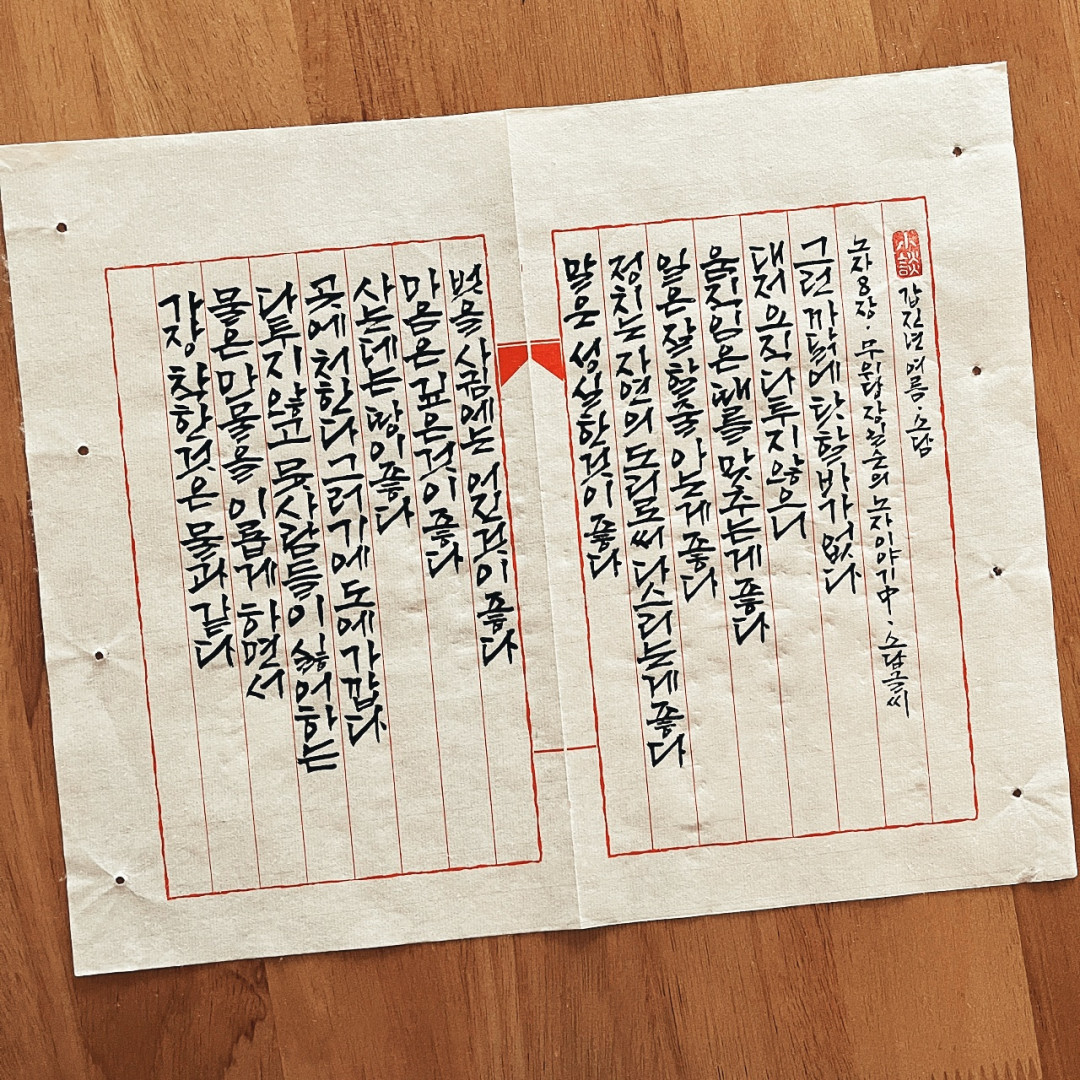 가장 착한것은 물과 같다
물은 만물을 이롭게 하면서
다투지 않고 뭇사람들이 싫어하는
곳에 처한다 그러기에 도에 가깝다
사는데는 땅이 좋다
마음은 깊은것이 좋다
벗을 사귐에는 어진것이 좋다
말은 성실한것이 좋다
정치는 자연의 도리로써 다스리는게 좋다
일은 잘할줄 아는게 좋다
움직임은 때를 맞추는게 좋다
대저 오직 다투지 않으니
그런 까닭에 탓할바가 없다
노자8장·무위당 장일순의 노자이야기中·소담글씨
갑진년 여름·소담
小談